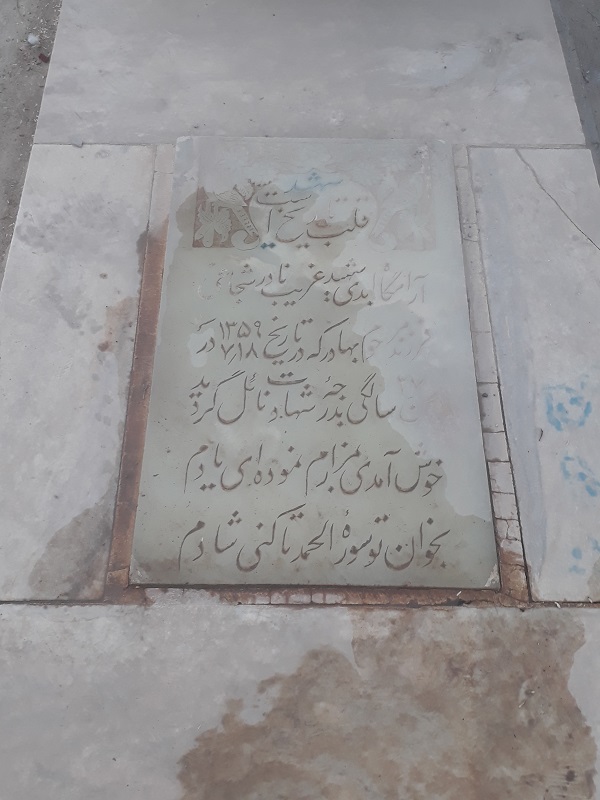 شهید
قلب تاریخ است
آرامگاه ابدی شهید غریب نادر
فرزند بهادر که در تاریخ ۱۳۵۹/۷/۱۸ در
سالگی بدرجهٔ شهادت نائل گردید
خوش آمدی بمزارم نموده‌ای یادم
بخوان تو سورهٔ الحمد تا کنی شادم